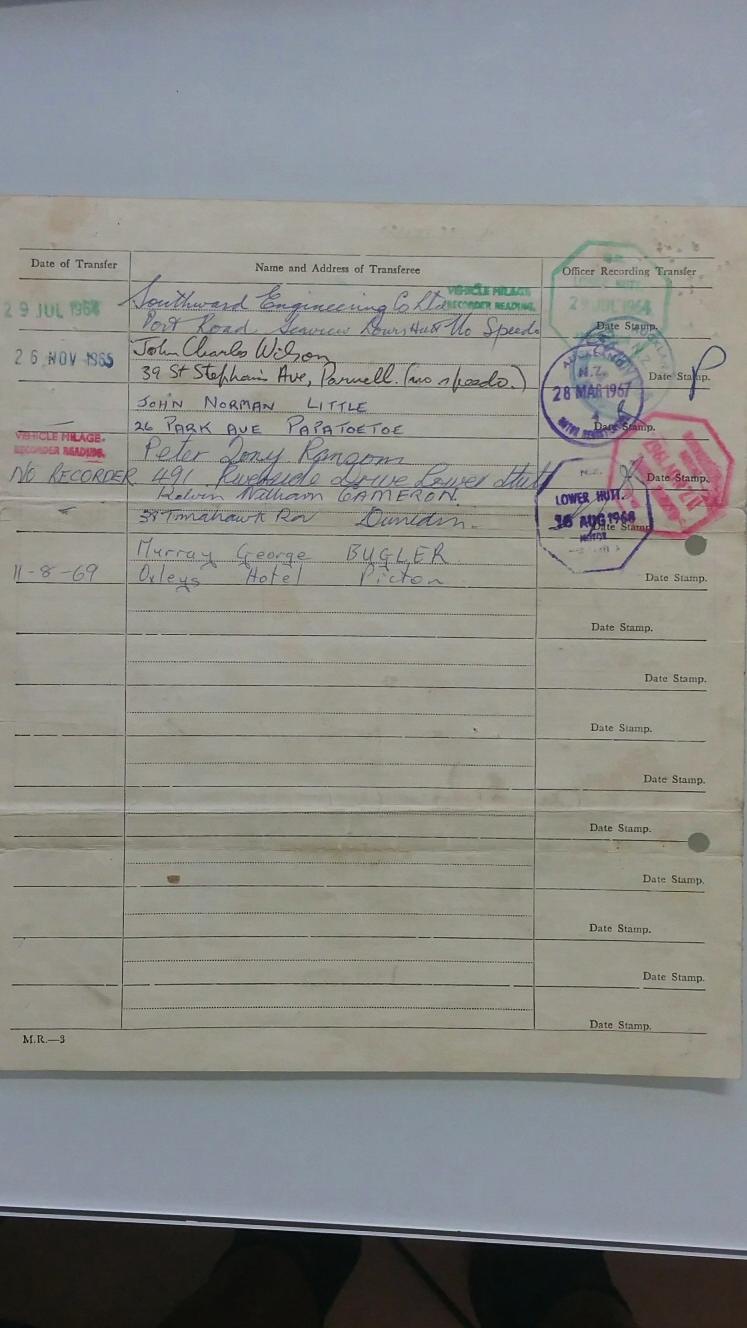 Date of Transfer
Name and Address of Transferee
Officer Recording Transfer
29 JUL 1964
Southward Engineering Co Ltd
VEHICLE MILAGE
RECORDER READING.
LOWER HUTT
29 JUL 1964
Port Road Seaview Lower Hutt No Speedo
Date Stamp.
26 NOV 1965
John Charles Wilson
39 St Stephens Ave, Parnell. (no speedo.)
N.Z.
28 MAR 1967
Date Stamp.
P
JOHN NORMAN LITTLE
26 PARK AVE PAPATOETOE
Date Stamp.
VEHICLE MILAGE
RECORDER READING.
Peter Tony Ransom
NO RECORDER 491 Riverside Drive Lower Hutt
Date Stamp.
Kelvin William CAMERON.
N.Z.
LOWER HUTT.
16 AUG 1968
MOTOR
38 Tomahawk Rd Dunedin.
Date Stamp.
Murray George BUGLER
11-8-69 Oxleys Hotel Picton
Date Stamp.
Date Stamp.
Date Stamp.
Date Stamp.
Date Stamp.
Date Stamp.
Date Stamp.
Date Stamp.
Date Stamp.
Date Stamp.
M.R.—3